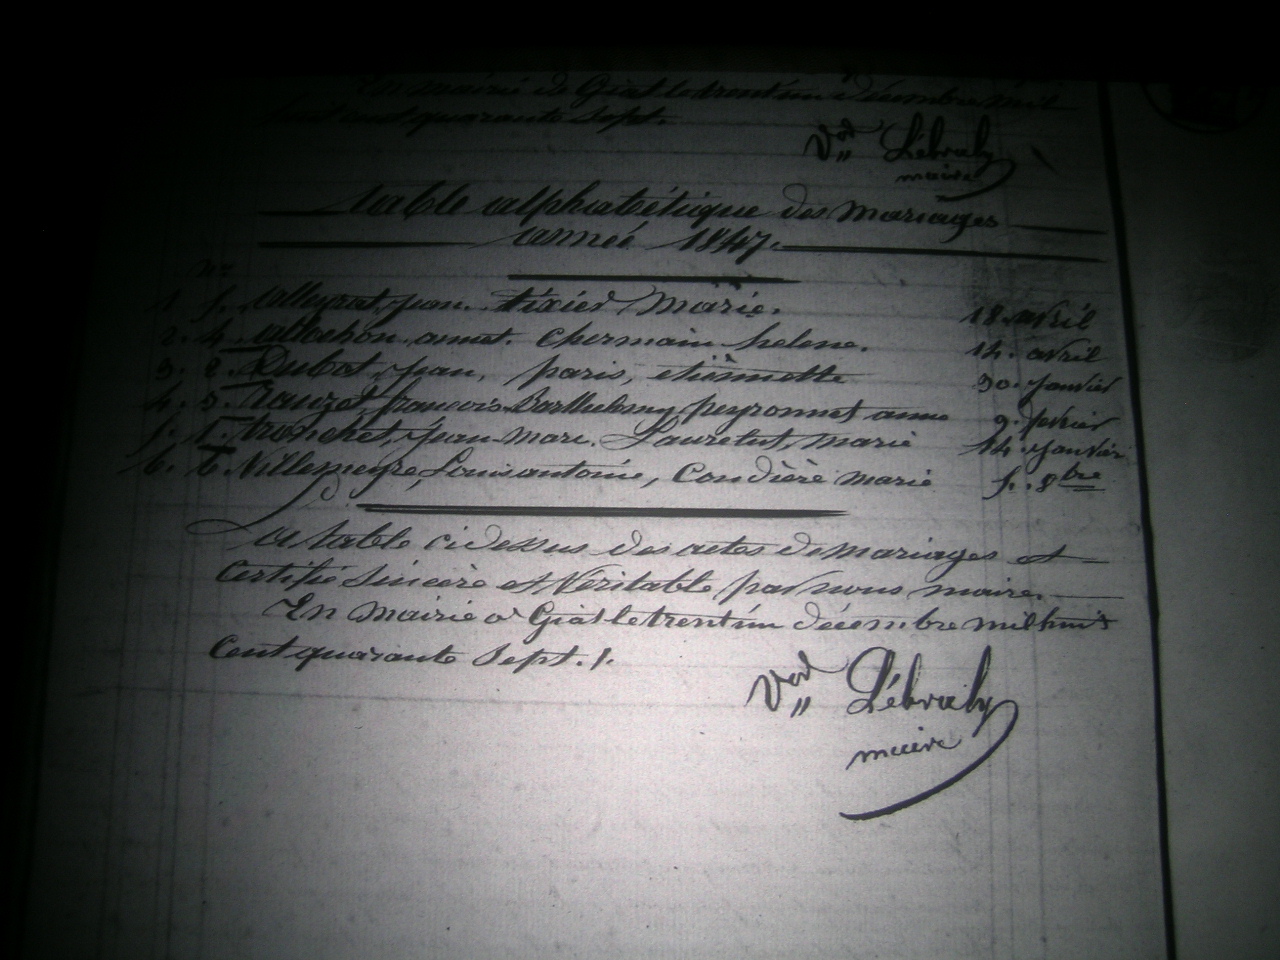 En mairie de Giat le trent'un décembre mil
huit cent quarante sept.
Vor Lébraly
maire
table alphabétique des mariages
année 1847.
nos
1. 5. alleyrat, jean. tixier Marie. 18. avril
2. 4. allochon annet. chermain helene. 14. avril
3. 2. Dubost, jean, paris, etiennette 30. janvier
4. 3. Rauzet, francois Barthelemy, peyronnet anne 9. fevrier
5. 1. tronchet, jean-marie. Lauretut, marie 14. janvier
6. 6. Villemeyre, Louis antoine, Coudière marie 5. 8bre
La table ci dessus des actes de mariages et
Certifié Sincère et Véritable par nous maire.
En Mairie a Giat le trent'un décembre mil huit
Cent quarante Sept. /.
Vor Lébraly
maire